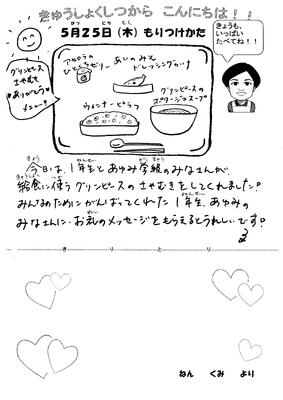 きゅうしょくしつから こんにちは！！
５月２５日（木）もりつけかた
きょうも、
いっぱい
たべてね！！
グリンピース
さやむき
ありがとう
メニュー
アセロラの
ひとくちゼリー
あじのみそ
ドレッシングかけ
ウィンナーピラフ
グリンピースの
ポタージュスープ
今日は、1年生とあゆみ学級のみなさんが、
給食に使うグリンピースのさやむきをしてくれました！
みんなのためにがんばってくれた1年生、あゆみの
みなさんに、お礼のメッセージをもらえるとうれしいです！
きりとり
ねん くみ より